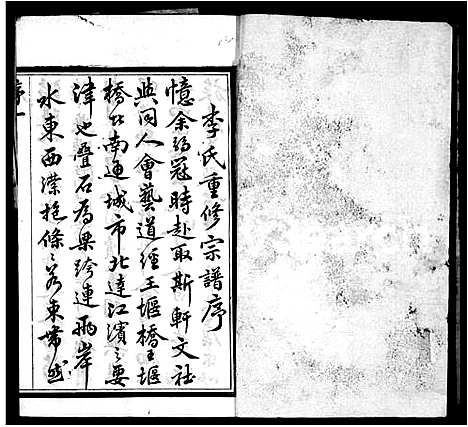 李氏重修宗譜序
憶余弱冠時赴取斯軒文社
與同人會藝道經王堰橋王堰
橋者南通城市北達江濱之要
津也疊石為梁跨連兩岸
水東西瀠抱條條若東帶然
序一